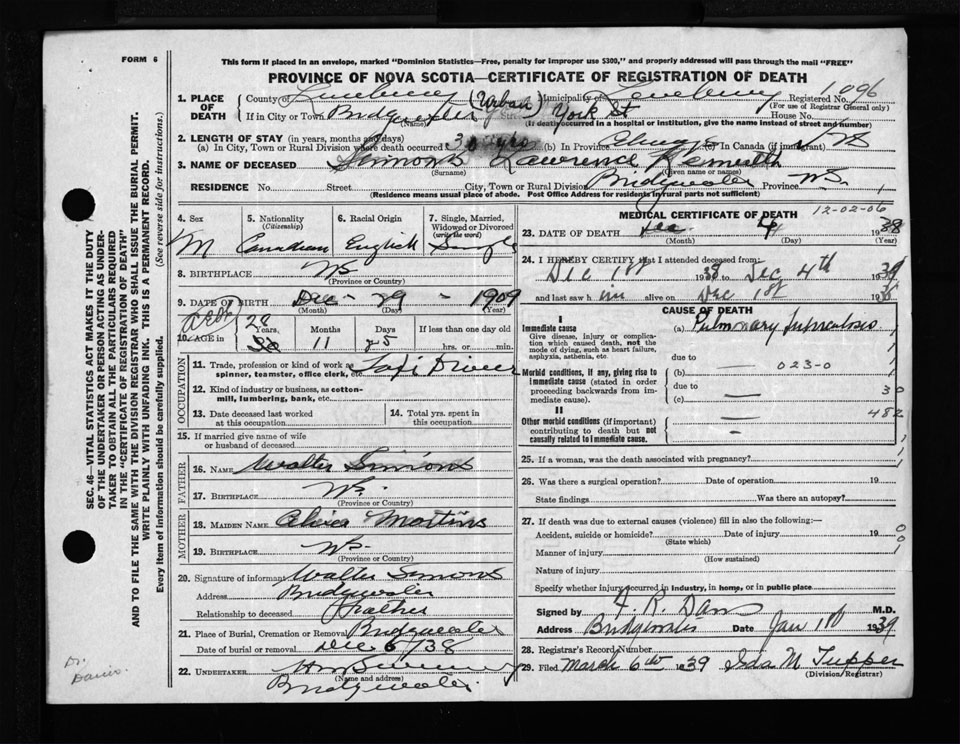 FORM 6
This form if placed in an envelope, marked "Dominion Statistics—Free, penalty for improper use $300," and properly addressed will pass through the mail "FREE"
PROVINCE OF NOVA SCOTIA—CERTIFICATE OF REGISTRATION OF DEATH
1. PLACE OF DEATH County of Lunenburg (Urban) Municipality of Lunenburg Registered No. 1096
(For use of Registrar General only)
If in City or Town Bridgewater Street York St House No.
(Name) (If death occurred in a hospital or institution, give the name instead of street and number)
2. LENGTH OF STAY (in years, months and days)
(a) In City, Town or Rural Division where death occurred 30 yrs (b) In Province Always (c) In Canada (if immigrant)
3. NAME OF DECEASED Simons Lawrence Kenneth
(Surname) (Given name or names)
RESIDENCE No. Street City, Town or Rural Division Bridgewater Province N.S.
(Residence means usual place of abode. Post Office Address for Residents in rural parts not sufficient)
4. Sex M
5. Nationality (Citizenship) Canadian
6. Racial Origin English
7. Single, Married, Widowed or Divorced (write the word) Single
8. BIRTHPLACE N.S.
(Province or Country)
9. DATE OF BIRTH Dec - 29 - 1909
(Month) (Day) (Year)
10. AGE in 29 Years 11 Months 25 Days If less than one day old hrs. or min.
OCCUPATION
11. Trade, profession or kind of work as spinner, teamster, office clerk, etc. Taxi Driver
12. Kind of industry or business, as cotton-mill, lumbering, bank, etc.
13. Date deceased last worked at this occupation
14. Total yrs. spent in this occupation
15. If married give name of wife or husband of deceased
FATHER
16. NAME Walter Simons
17. BIRTHPLACE N.S.
(Province or Country)
MOTHER
18. MAIDEN NAME
19. BIRTHPLACE N.S.
(Province or Country)
20. Signature of informant Walter Simons
Address Bridgewater
Relationship to deceased Father
21. Place of Burial, Cremation or Removal Bridgewater
Date of burial or removal Dec 6/38
22. UNDERTAKER
(Name and address)
Bridgewater
MEDICAL CERTIFICATE OF DEATH
12-02-06
23. DATE OF DEATH Dec 4 1938
(Month) (Day) (Year)
24. I HEREBY CERTIFY that I attended deceased from:
Dec 1st 1938 to Dec 4th 19
and last saw him alive on Dec 1st 19
CAUSE OF DEATH
I
Immediate cause
Give disease, injury or complication which caused death, not the mode of dying, such as heart failure, asphyxia, asthenia, etc.
(a) Pulmonary Tuberculosis
due to
Morbid conditions, if any, giving rise to immediate cause (stated in order proceeding backwards from immediate cause).
(b) — 023-0
due to
(c) —
30
482
II
Other morbid conditions (if important) contributing to death but not causally related to immediate cause.
—
25. If a woman, was the death associated with pregnancy?
26. Was there a surgical operation? Date of operation 19
State findings Was there an autopsy?
27. If death was due to external causes (violence) fill in also the following:—
Accident, suicide or homicide? Date of injury 19
(State which)
Manner of injury
(How sustained)
Nature of injury
Specify whether injury occurred in industry, in home, or in public place
Signed by M.D.
Address Bridgewater Date Jan 1939
28. Registrar's Record Number
29. Filed March 6th 1939 Ida M Tupper
(Division/Registrar)
SEC. 46—VITAL STATISTICS ACT MAKES IT THE DUTY
OF THE UNDERTAKER OR PERSON ACTING AS UNDER-
TAKER TO OBTAIN ALL THE PARTICULARS REQUIRED
IN THE "CERTIFICATE OF REGISTRATION OF DEATH"
AND TO FILE THE SAME WITH THE DIVISION REGISTRAR WHO SHALL ISSUE THE BURIAL PERMIT.
WRITE PLAINLY WITH UNFADING INK. THIS IS A PERMANENT RECORD.
Every item of information should be carefully supplied. (See reverse side for instructions.)
Dr.